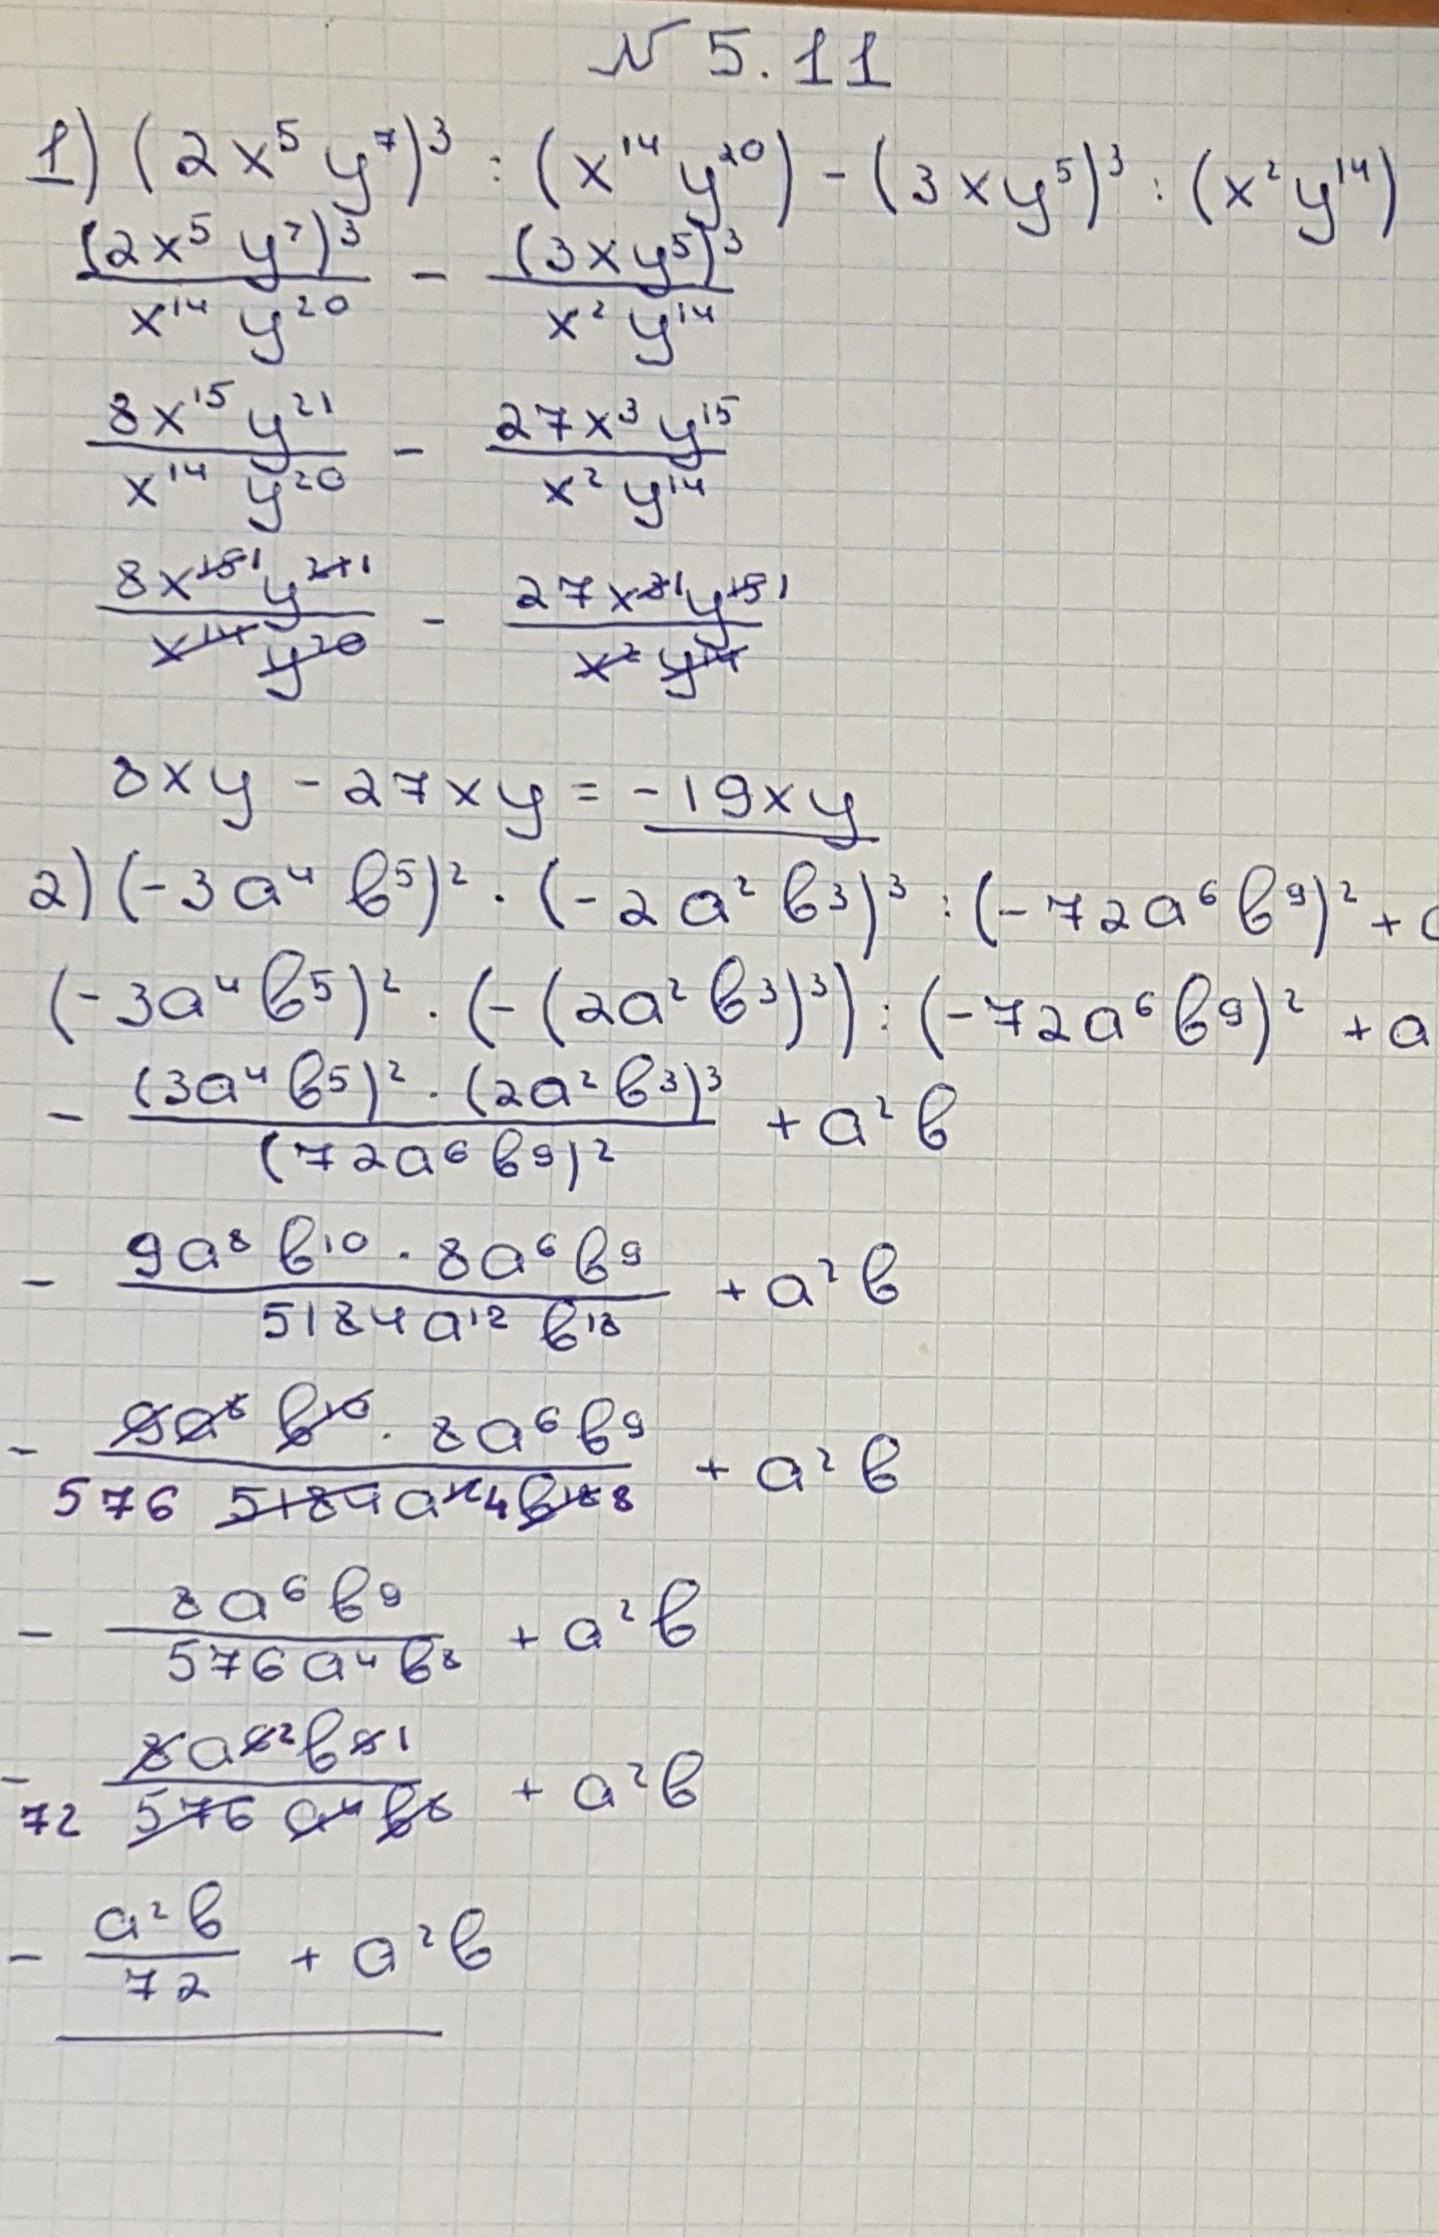 № 5.11
1) (2x⁵ y⁷)³ : (x¹⁴ y²⁰) - (3xy⁵)³ : (x² y¹⁴)
(2x⁵ y⁷)³ / x¹⁴ y²⁰ - (3xy⁵)³ / x² y¹⁴
8x¹⁵ y²¹ / x¹⁴ y²⁰ - 27x³ y¹⁵ / x² y¹⁴
8x¹⁵ ¹ y²¹ ¹ / x¹⁴ y²⁰ - 27x³ ¹ y¹⁵ ¹ / x² y¹⁴
8xy - 27xy = -19xy
2) (-3a⁴ b⁵)² · (-2a² b³)³ : (-72a⁶ b⁹)² +
(-3a⁴ b⁵)² · (-(2a² b³)³) : (-72a⁶ b⁹)² + a
- (3a⁴ b⁵)² · (2a² b³)³ / (72a⁶ b⁹)² + a² b
- 9a⁸ b¹⁰ · 8a⁶ b⁹ / 5184a¹² b¹⁸ + a² b
- 9a⁸ b¹⁰ · 8a⁶ b⁹ / 576 5184a¹² ⁴ b¹⁸ ⁸ + a² b
- 8a⁶ b⁹ / 576a⁴ b⁸ + a² b
- 8a⁶ ² b⁹ ¹ / 72 576 a⁴ b⁸ + a² b
- a² b / 72 + a² b